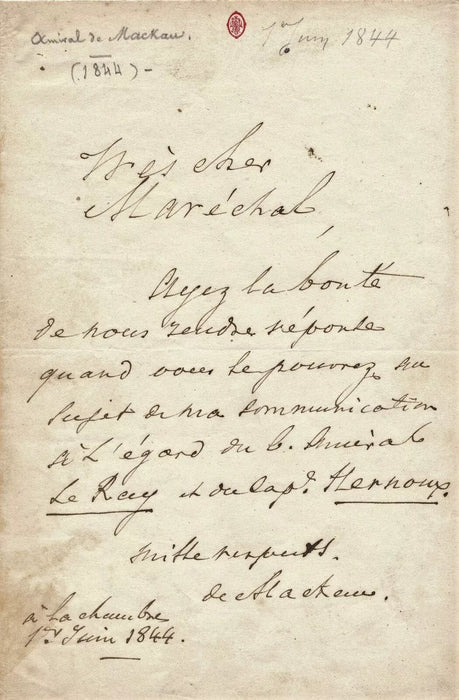 Amiral de Mackau.
(1844) -
1er Juin 1844
Très cher
Maréchal,
Ayez la bonté
de nous rendre réponse
quand vous le pourrez, au
sujet de ma communication
à l'égard du C. Amiral
Le Ray et du Cape. Hernoux.
Mille respects.
de Mackau.
à la chambre
1er Juin 1844.